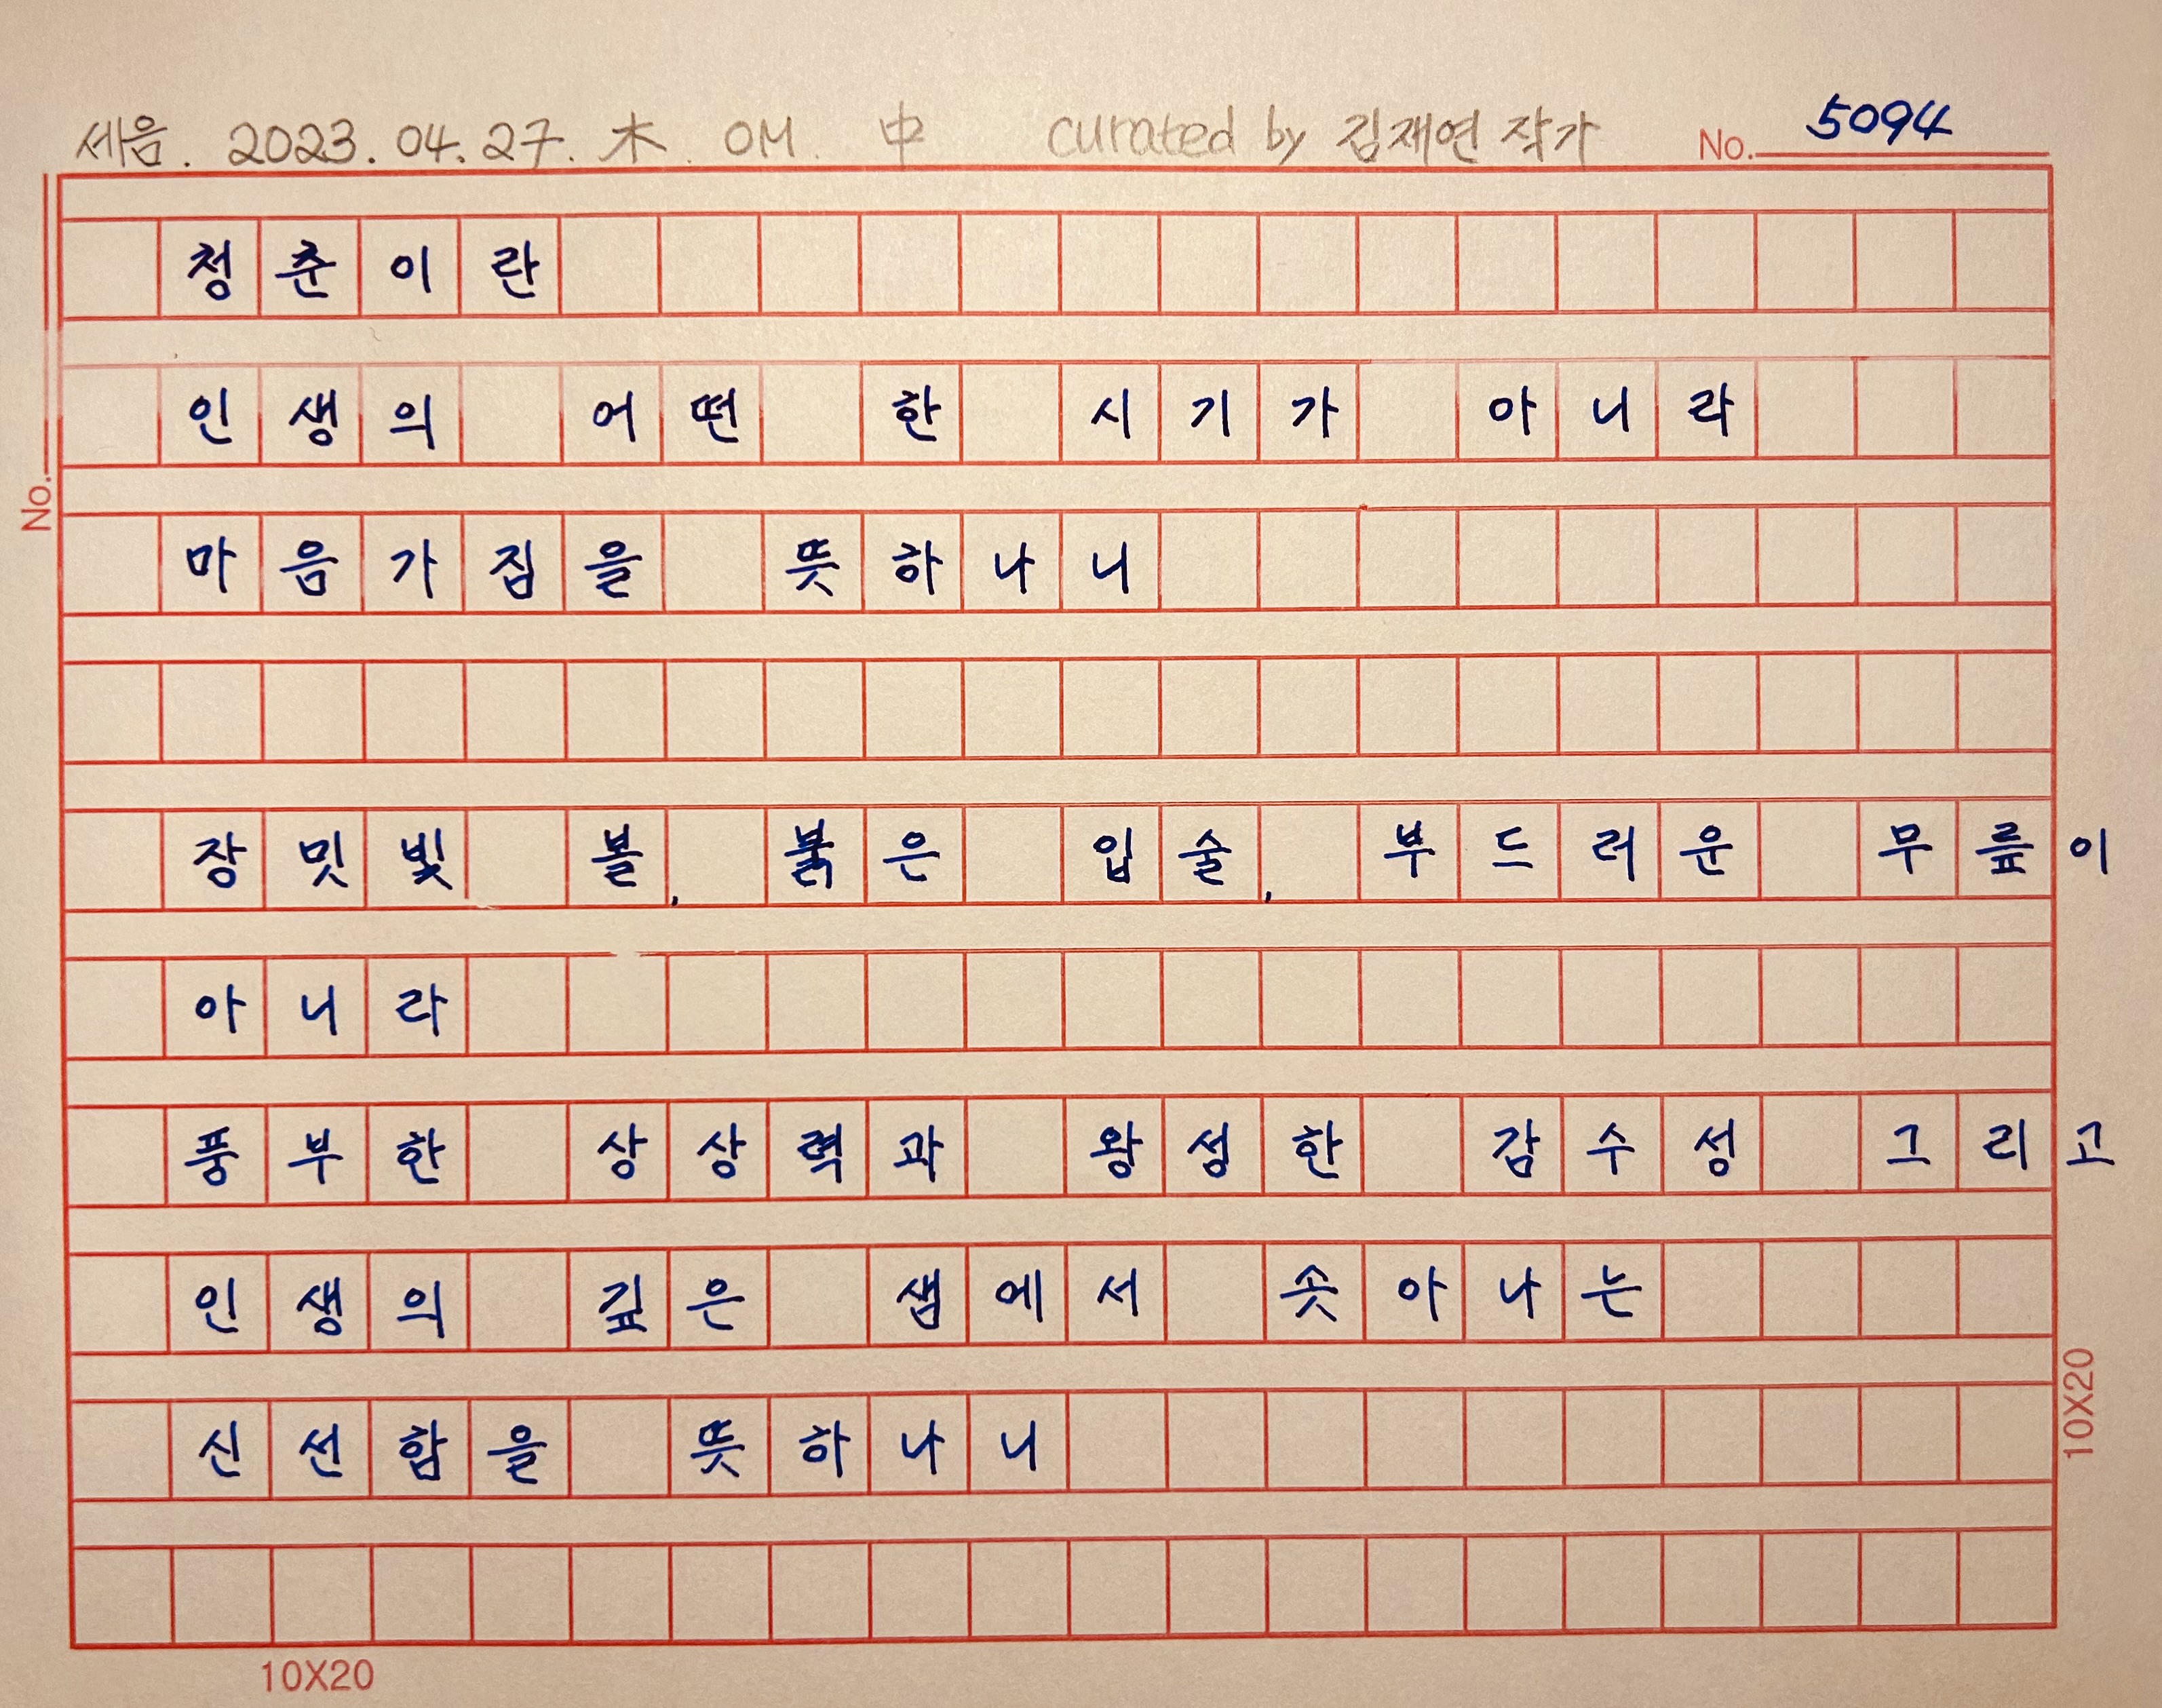 세음. 2023. 04. 27. 木. OM. 中 curated by 김재연 작가 No. 5094
청춘이란
인생의 어떤 한 시기가 아니라
마음가짐을 뜻하나니
No.
장밋빛 볼, 붉은 입술, 부드러운 무릎이
아니라
풍부한 상상력과 왕성한 감수성 그리고
인생의 깊은 샘에서 솟아나는
신선함을 뜻하나니
10X20
10X20